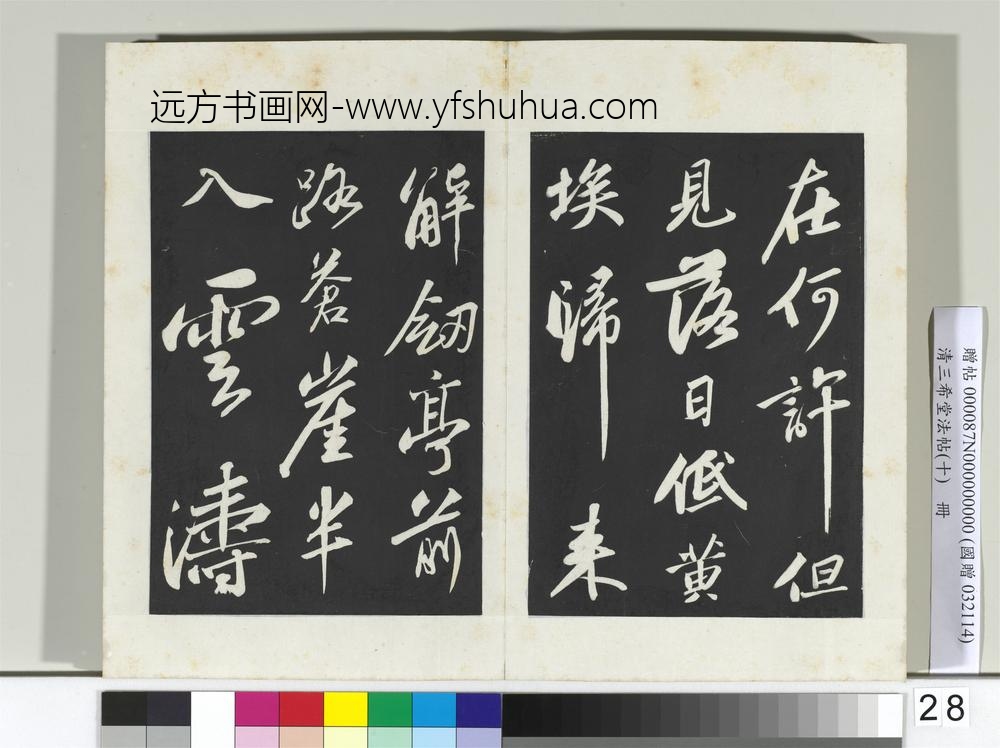 远方书画网-www.yfshuhua.com
在何許但
見落日低黄
埃歸来
解劒亭前
路蒼崖半
入雲濤
贈帖 000087N000000000 (國贈 032114)
清三希堂法帖(十) 冊
28